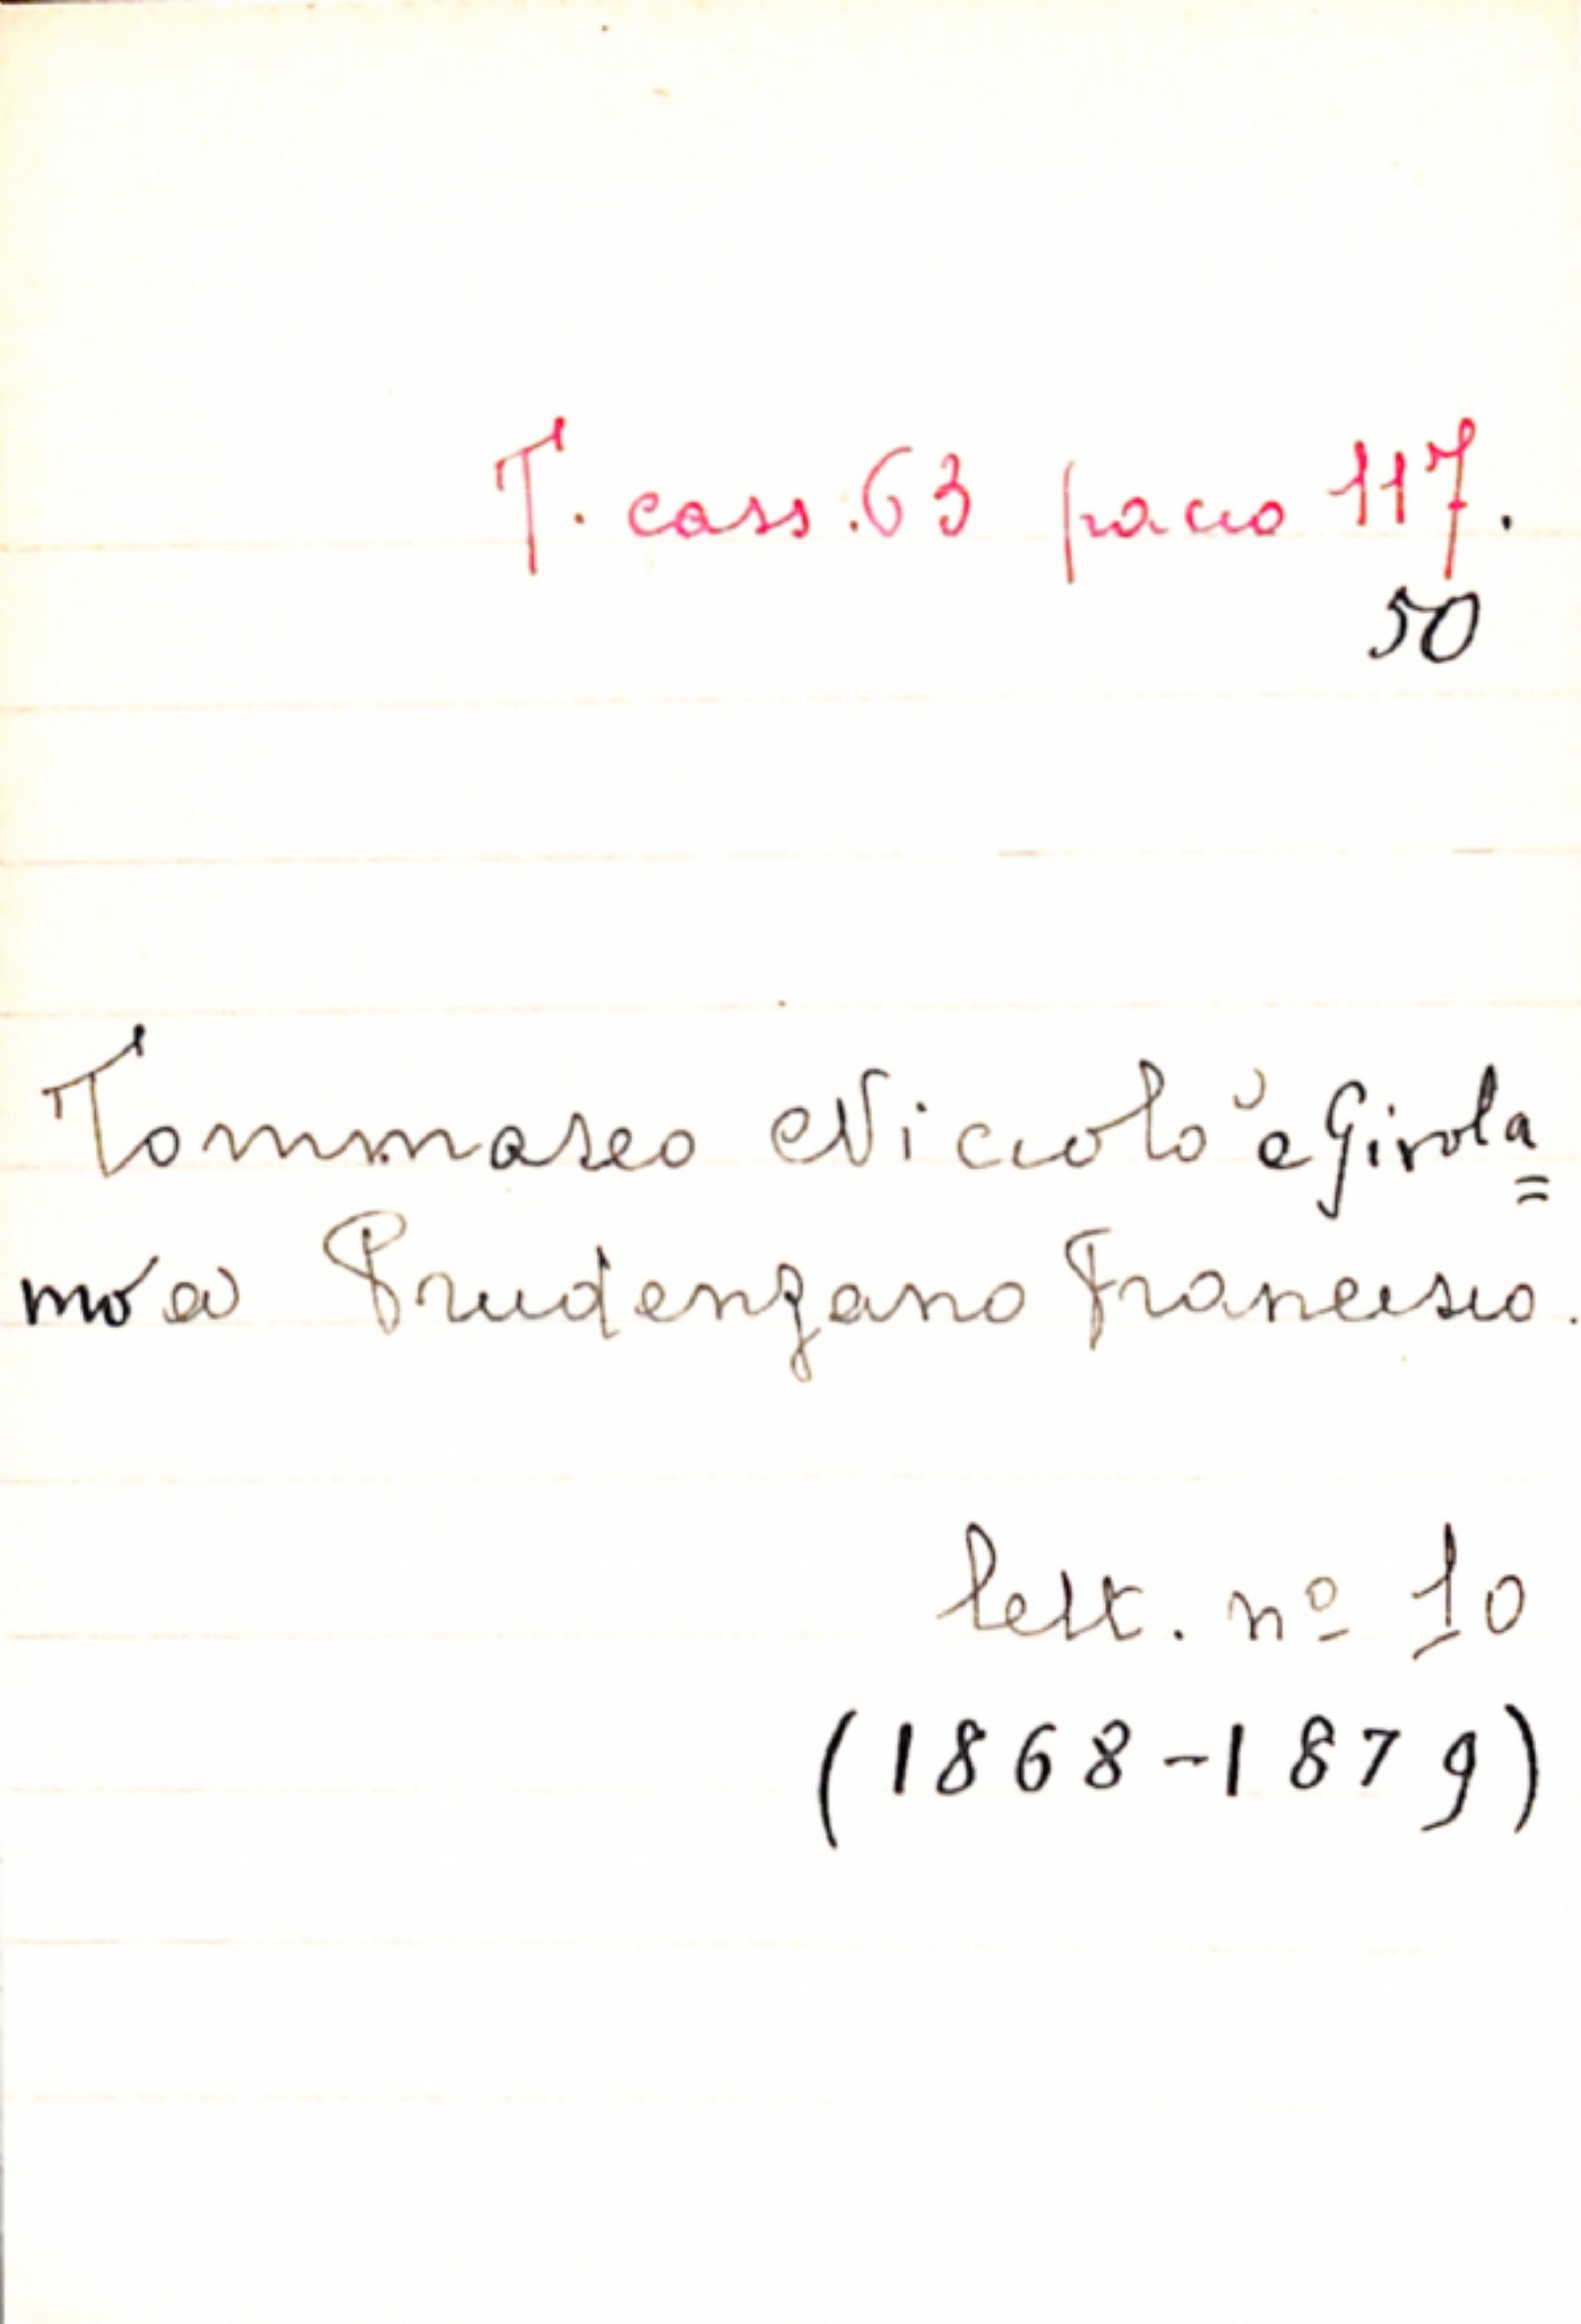 T. cass. 63 pacco 117.
50
Tommaseo Niccolò e Girola=
mo a Prudenzano Francesco.
lett. nº 10
(1868-1879)